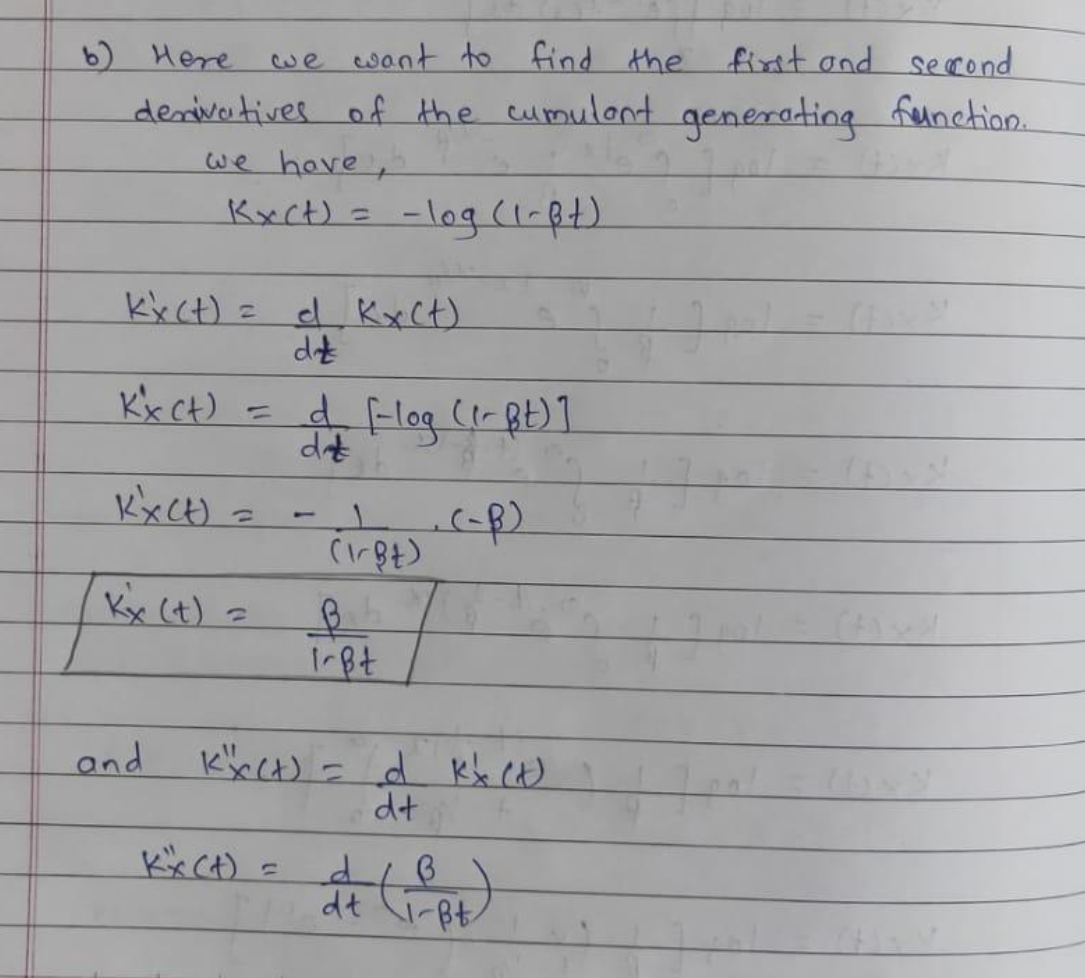 b) Here we want to find the first and second
derivatives of the cumulant generating function.
we have,
Kx(t) = -log (1-βt)
K'x(t) = d/dt Kx(t)
K'x(t) = d/dt [-log (1-βt)]
K'x(t) = - 1/(1-βt) . (-β)
K'x(t) = β/1-βt
and K''x(t) = d/dt K'x(t)
K''x(t) = d/dt (β/1-βt)